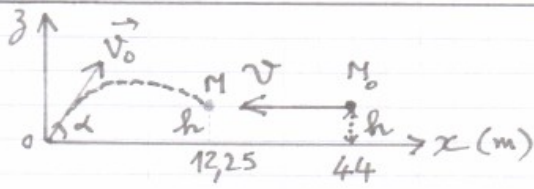 z
v₀
M v M₀
α h h
0 x (m)
12,25 44